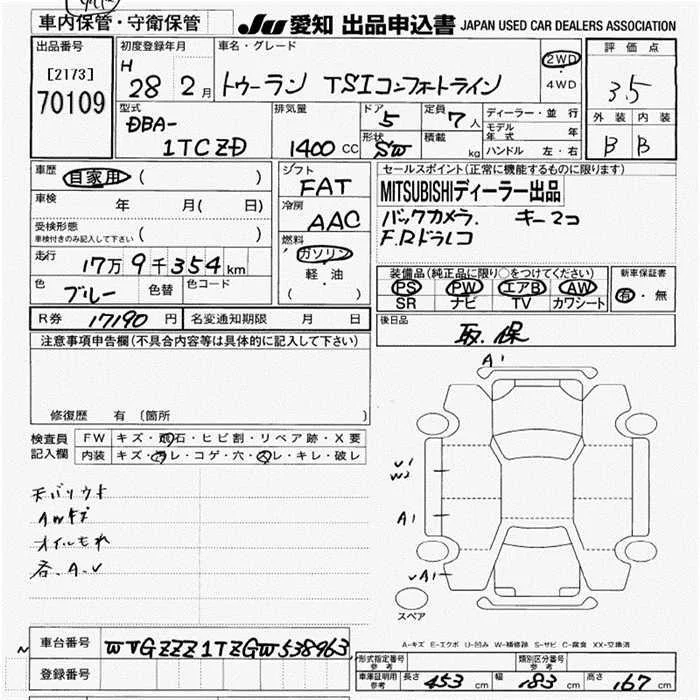 車内保管・守衛保管
JU 愛知 出品申込書 JAPAN USED CAR DEALERS ASSOCIATION
出品番号
[2173]
70109
初度登録年月
H 28年 2月
車名・グレード
トゥーラン TSIコンフォートライン
2WD
・
4WD
評価点
3.5
外装 内装
B B
型式
DBA-
1TCZD
排気量
1400 CC
ドア
5
形状
SW
定員
7人
積載
kg
ディーラー・並行
モデル年式 年
ハンドル 左・右
車歴
自家用 ( )
車検 年 月( 日)
受検形態
車検付きのみ記入して下さい ( )
走行
17万9千354km
色
ブルー
色替
色コード
シフト
FAT
冷房
AAC
燃料
ガソリン
軽・油
( )
セールスポイント(正常に機能するものに限ります)
MITSUBISHIディーラー出品
バックカメラ. キー2コ
F.Rドラレコ
装備品(純正品に限り○をつけてください)
PS PW エアB AW
SR ナビ TV カワシート
新車保証書
有・無
R券 17190円
名変通知期限 月 日
後日品
取.保
注意事項申告欄(不具合内容等は具体的に記入して下さい)
修復歴 有 (箇所 )
検査員
記入欄
FW キズ・飛石・ヒビ割・リペア跡・X要
内装 キズ・汚レ・コゲ・穴・スレ・キレ・破レ
天バリウキ
AWキズ
オイルもれ
各.A.U
A1
A1
スペア
A-キズ E-エクボ U-凹み W-補修跡 S-サビ C-腐食 XX-交換済
車台番号
WVGZZZ1TZGW538963
登録番号
形式指定番号
参考
類別区分番号
参考
車庫証明用
参考
長さ 453 cm
幅 183 cm
高さ 167 cm